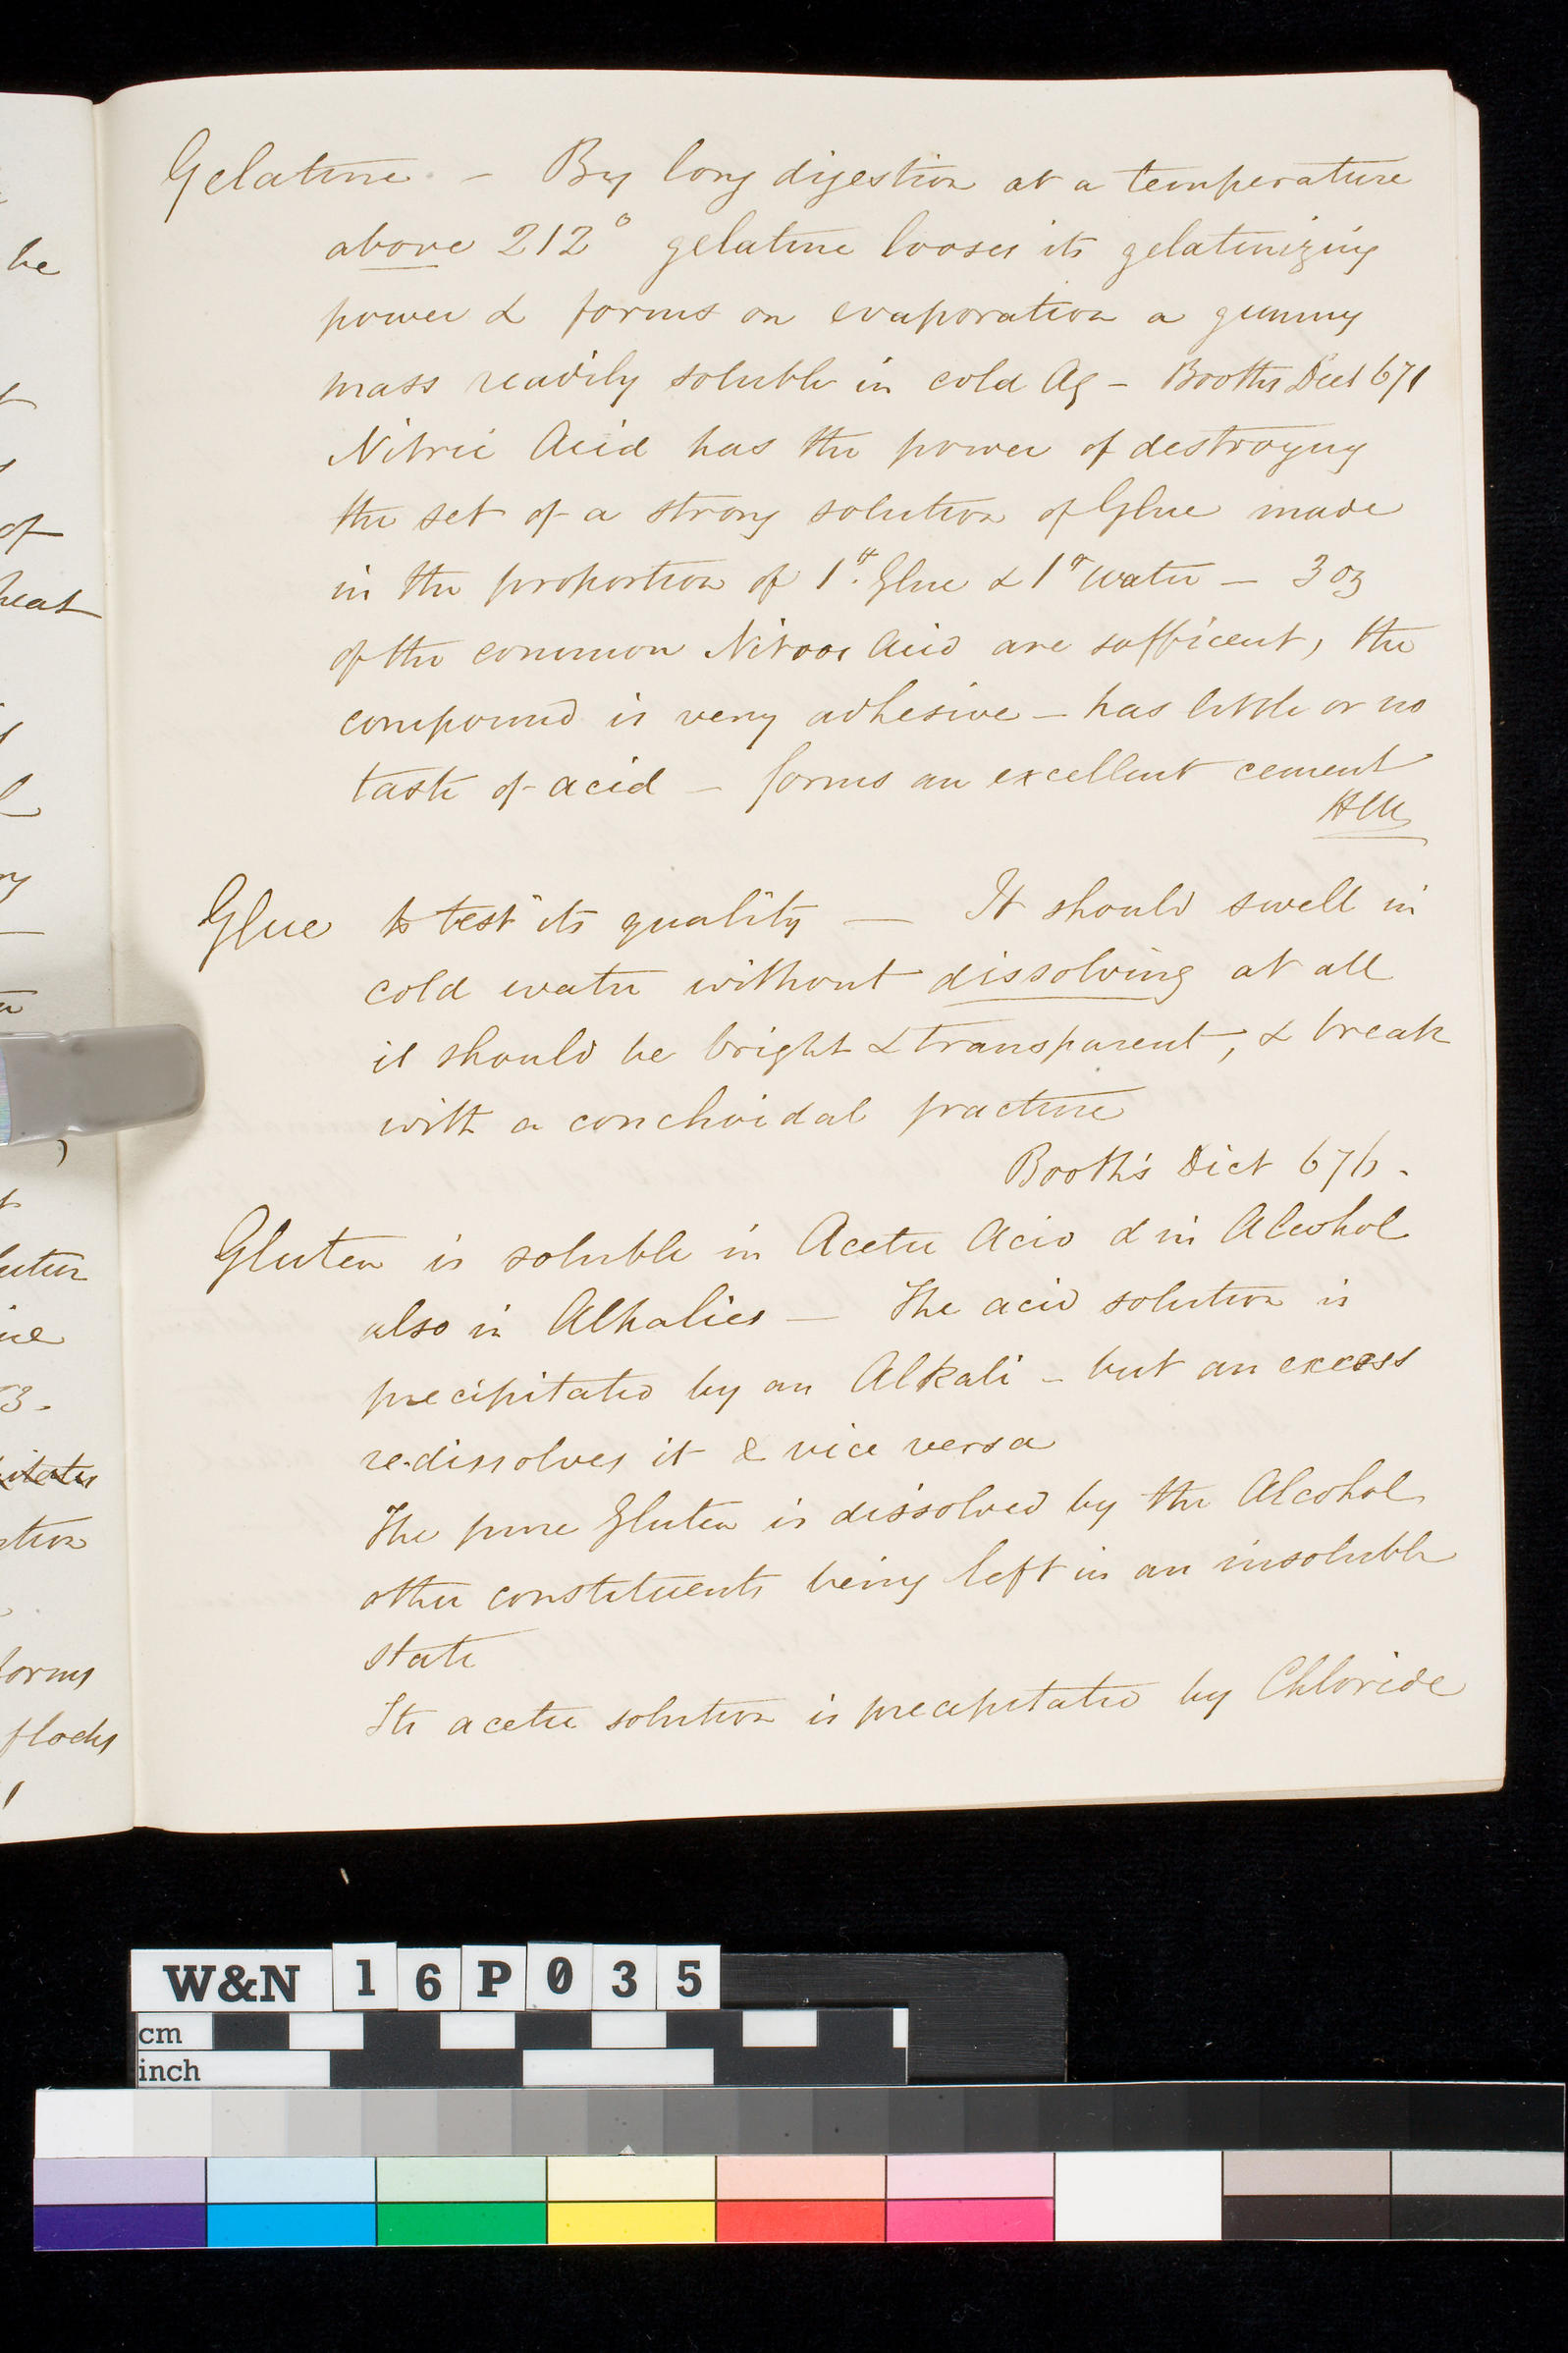 Gelatine - By long digestion at a temperature
above 212° gelatine looses its gelatinizing
power & forms on evaporation a gummy
mass readily soluble in cold Aq - Booths Dict 671
Nitric Acid has the power of destroying
the set of a strong solution of Glue made
in the proportion of 1 Glue & 1 water - 3 oz
of the common Nitrous Acid are sufficent, the
compound is very adhesive - has little or no
taste of acid - forms an excellent cement
Glue to test its quality - It should swell in
cold water without dissolving at all
it should be bright & transparent, & break
with a conchoidal fracture
Booth's Dict 676.
Gluten is soluble in Acetic Acid & in Alcohol
also in Alkalies - The acid solution is
precipitated by an Alkali - but an excess
re-dissolves it & vice versa
The pure Gluten is dissolved by the Alcohol
other constituents being left in an insoluble
state
Its acetic solution is precipitated by Chloride
be
of
heat
forms
flocks
W&N 16P035
cm
inch